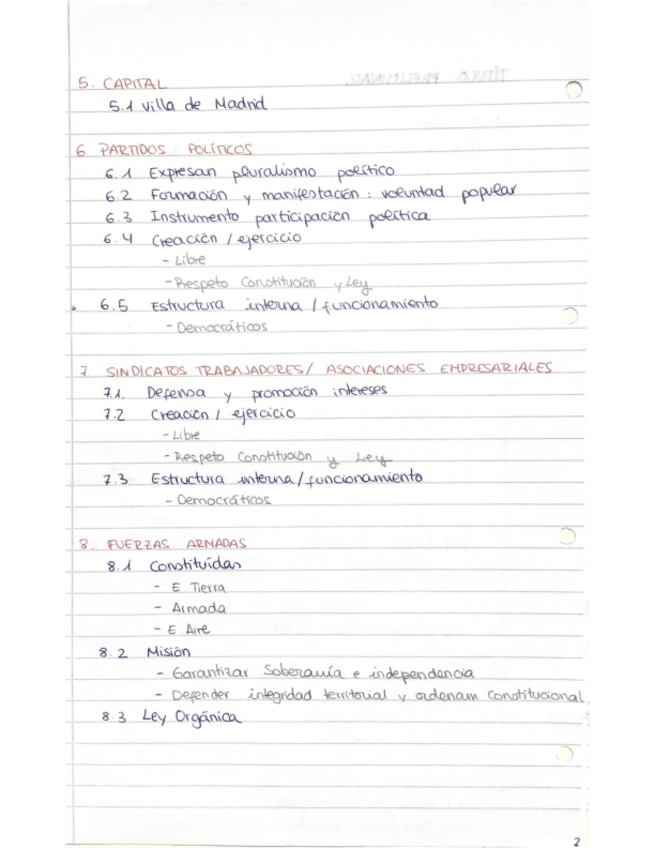 5. CAPITAL
5.1 Villa de Madrid
6 PARTIDOS POLÍTICOS
6.1 Expresan pluralismo político
6.2 Formación y manifestación: voluntad popular
6.3 Instrumento participación política
6.4 Creación / ejercicio
- Libre
- Respeto Constitución y Ley
6.5 Estructura interna / funcionamiento
- Democráticos
7 SINDICATOS TRABAJADORES / ASOCIACIONES EMPRESARIALES
7.1. Defensa y promoción intereses
7.2 Creación / ejercicio
- Libre
- Respeto Constitución y Ley
7.3 Estructura interna / funcionamiento
- Democráticos
8. FUERZAS ARMADAS
8.1 Constituídas
- E Tierra
- Armada
- E Aire
8.2 Misión
- Garantizar Soberanía e independencia
- Defender integridad territorial y ordenam Constitucional
8.3 Ley Orgánica
2